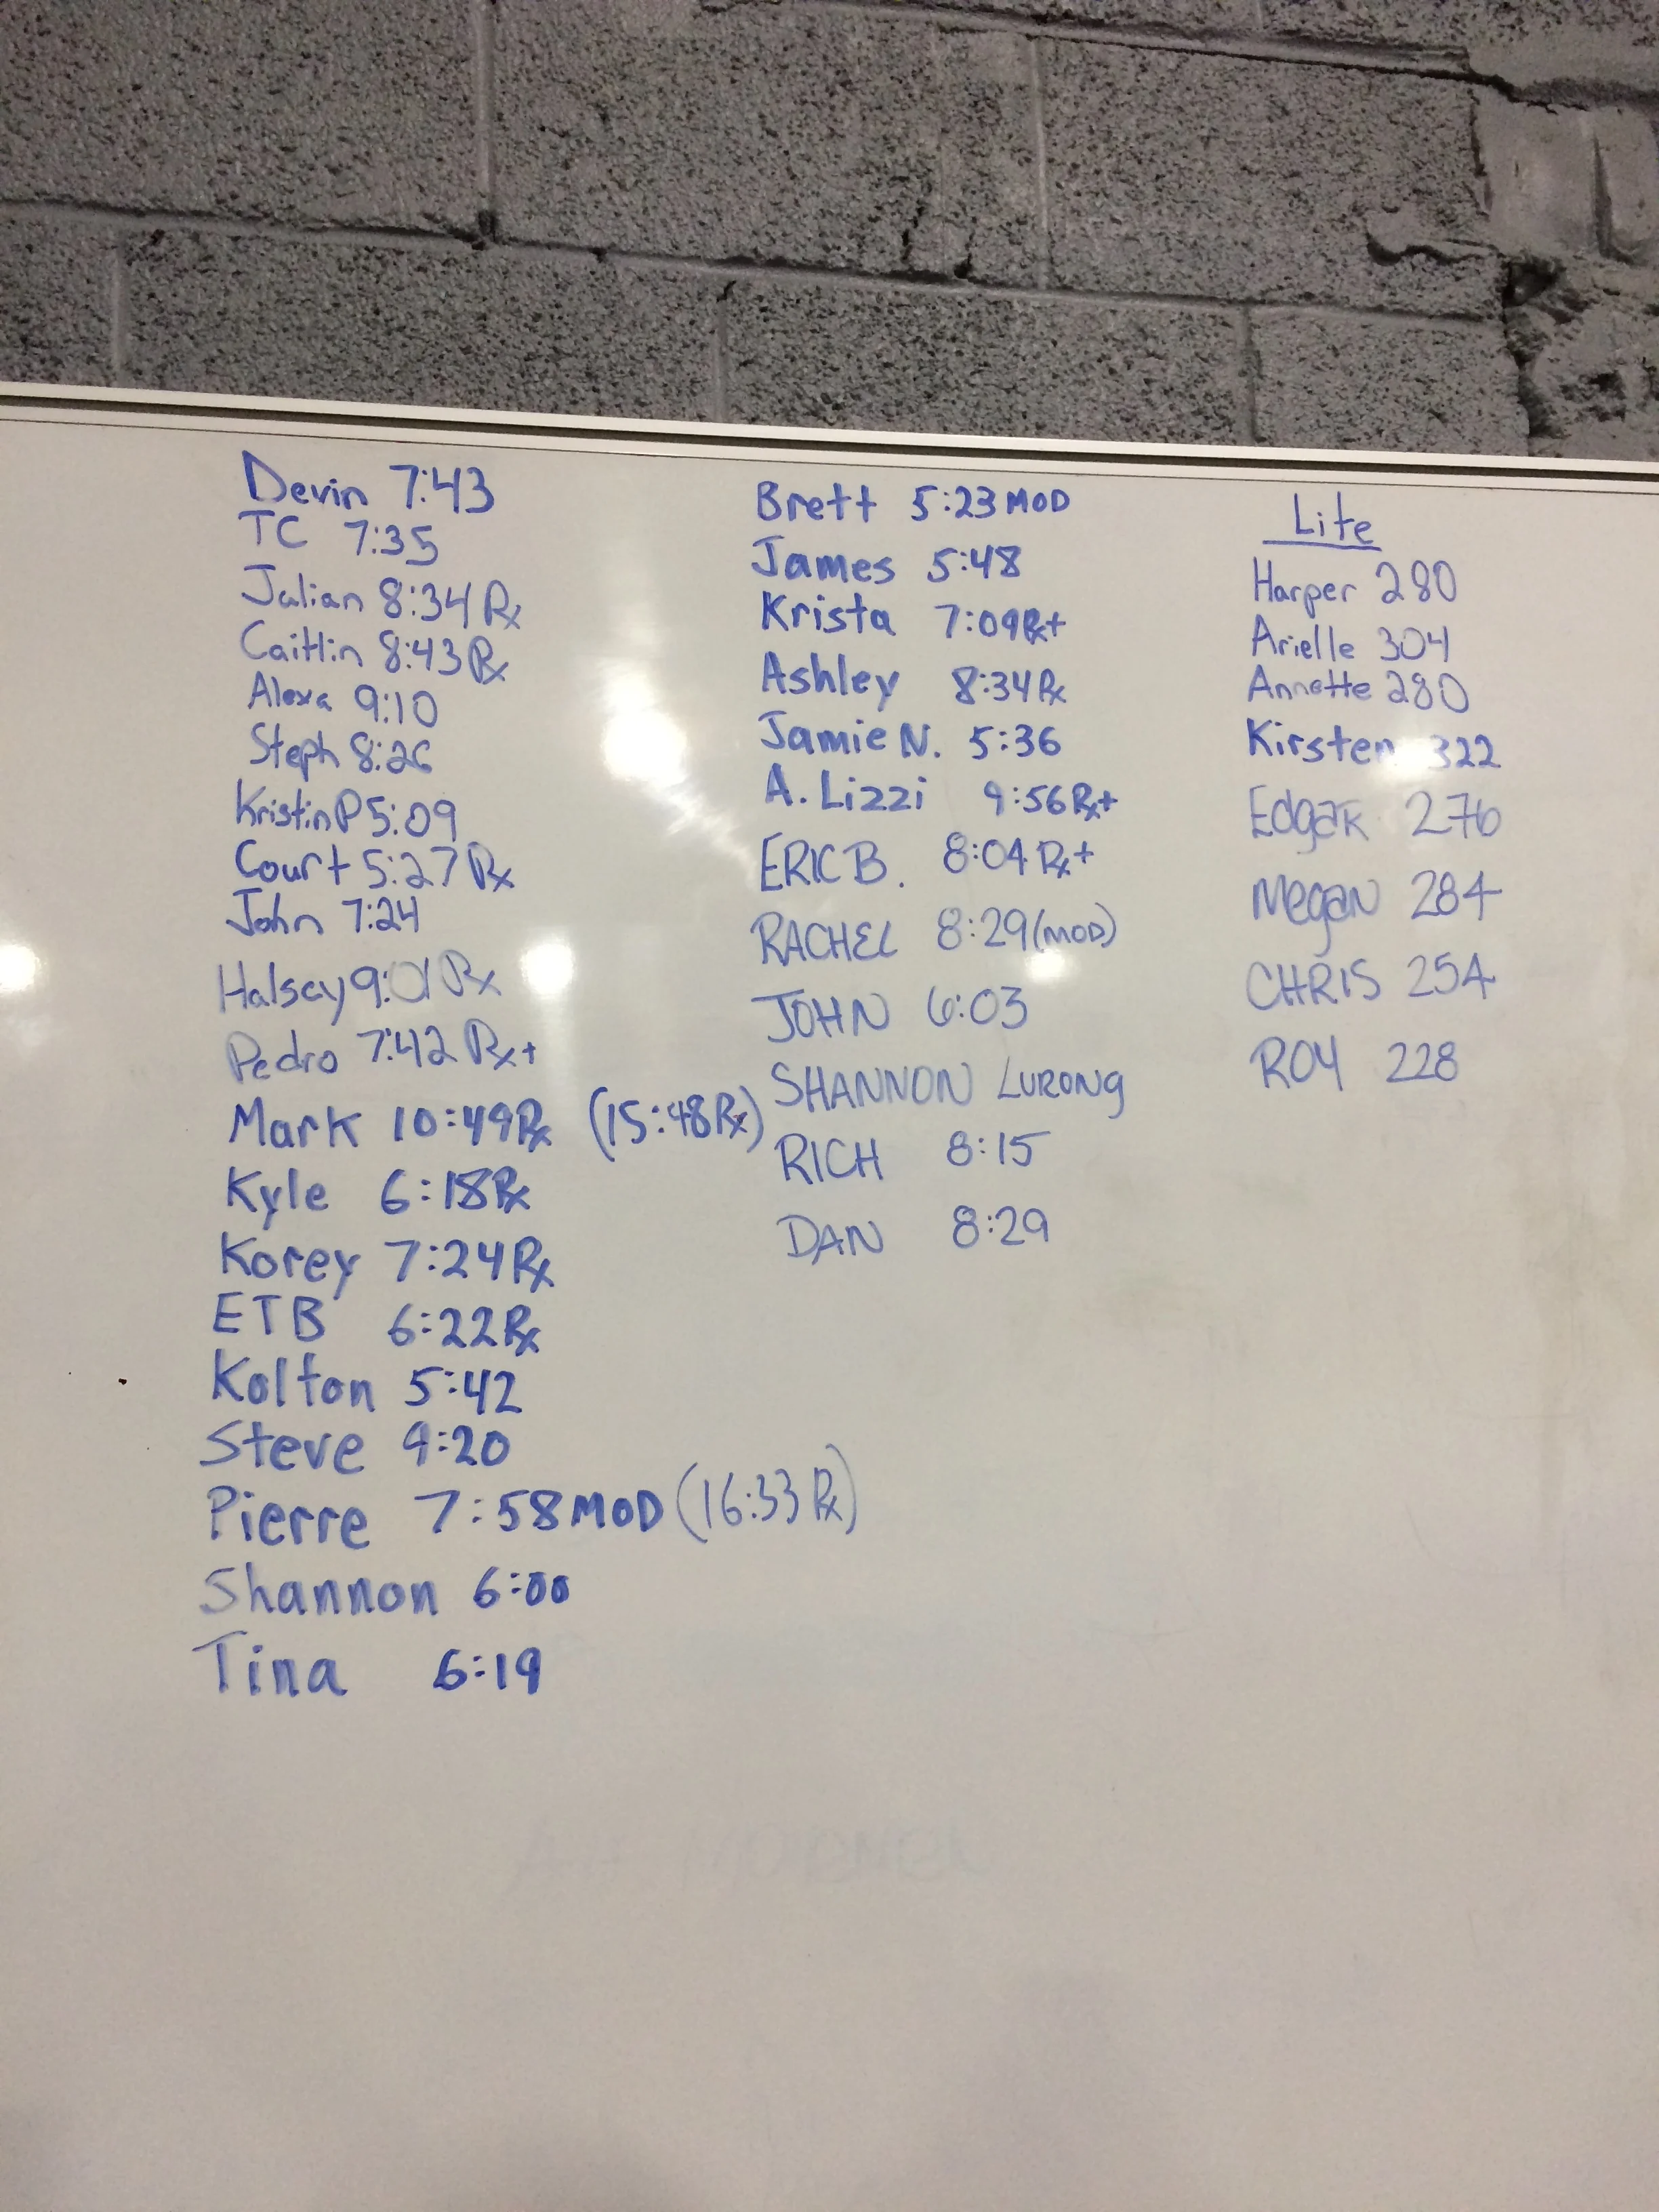 Devin 7:43
TC 7:35
Julian 8:34 Rx
Caitlin 8:43 Rx
Alexa 9:10
Steph 8:26
Kristin P 5:09
Court 5:27 Rx
John 7:24
Halsey 9:01 Rx
Pedro 7:42 Rx+
Mark 10:49 Rx (15:48 Rx)
Kyle 6:18 Rx
Korey 7:24 Rx
ETB 6:22 Rx
Kolton 5:42
Steve 9:20
Pierre 7:58 MOD (16:33 Rx)
Shannon 6:00
Tina 6:19
Brett 5:23 MOD
James 5:48
Krista 7:09 Rx+
Ashley 8:34 Rx
Jamie N. 5:36
A. Lizzi 9:56 Rx+
ERIC B. 8:04 Rx+
RACHEL 8:29 (MOD)
JOHN 6:03
SHANNON LURONg
RICH 8:15
DAN 8:29
Lite
Harper 280
Arielle 304
Annette 280
Kirsten 322
EdgaR 276
MegaN 284
CHRIS 254
ROY 228